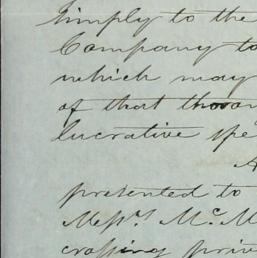 simply to the
Company to
which may
of that thoro
lucrative spe
A
presented to
Messrs. McM
crossing priv